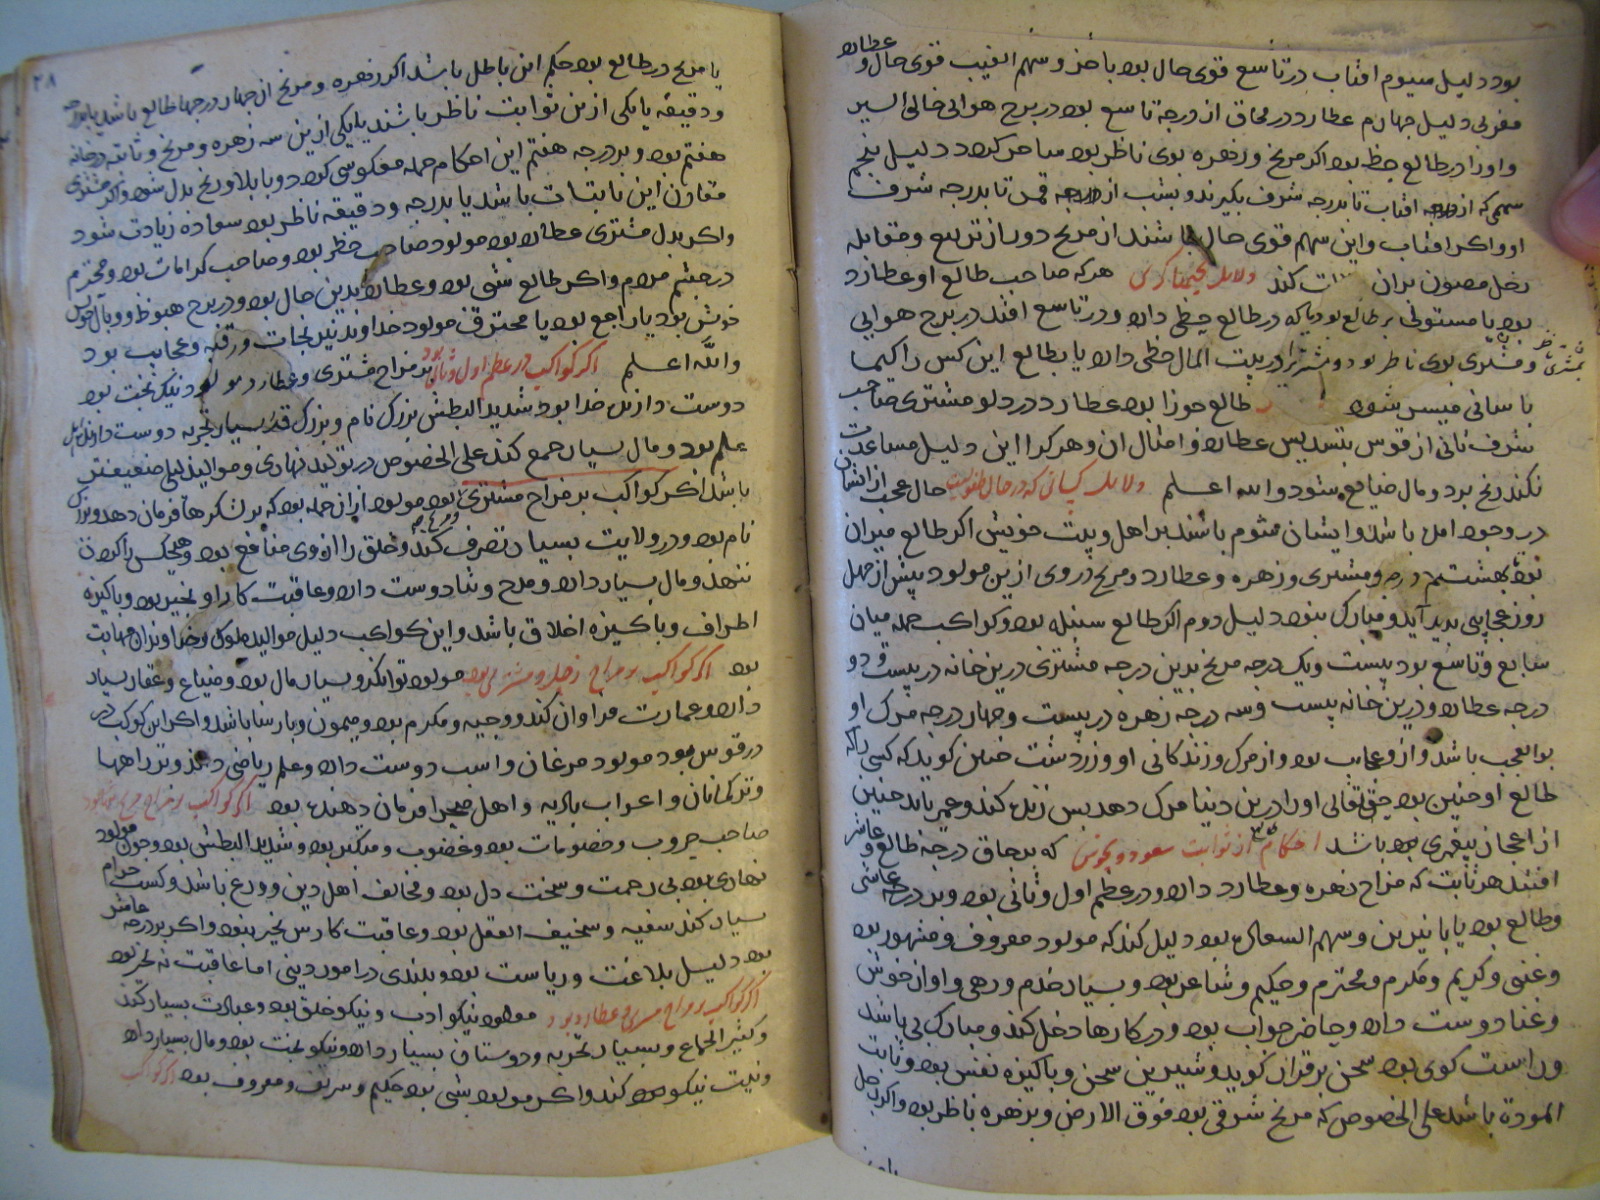 بود دلیل سیوم افتاب در تاسع قوی حال بود یا خز و سهم الغیب قوی حال و عطارد
مغربی دلیل جهارم عطارد در محاق از درجهٔ تاسع بود در برج هوایی خالی السیر
و او را در طالع حظ بود اکر مریخ و زهره بوی ناظر بود ساحر کردد دلیل پنجم
سهمی که از درجه افتاب تا بدرجه شرف بکیرند و بشب از درجه قمر تا بدرجه شرف
او و اکر افتاب و این سهم قوی حال باشند از مریخ دور از تربیع و مقابله
زحل مصون بران کند دلایل کیمیاگری هرکه صاحب طالع او عطارد
بود یا مستولی بر طالع بود یا که در طالع حظی دارد و در تاسع افتد در برج هوایی
و مشتری بوی ناظر بود و مشتری را در بیت المال حظی دارد یا بطالع این کس را کیمیا
باسانی میسر شود طالع جوزا بود عطارد در دلو مشتری صاحب
شرف ثانی از قوس بتسدیس عطارد و امثال ان و هرکرا این دلیل مساعدت
نکند رنج برد و مال ضایع شود و الله اعلم دلایل کسانی که در حال طفولیت حال عجب از ایشان
در وجود امل باشد و ایشان مشوم باشند بر اهل و بیت خویش اکر طالع میزان
بود بهشتم درجه و مشتری و زهره و عطارد و مریخ در وی ازین مولود پیش از چهل
روز عجایبی بدید آید و مبارک نبود دلیل دوم اکر طالع سنبله بود و کواکب جمله میان
سابع و تاسع بود بیست و یک درجه مریخ بدین درجه مشتری درین خانه در بیست و دو
درجه عطارد و درین خانه بیست و سه درجه زهره در بیست و جهار درجه مرک او
بوالعجب باشد و ازو عجایب بود و از مرک و زندکانی او و زردشت جنین کوید که کسی را که
طالع او جنین بود حق تعالی او را درین دنیا مرک دهد بس زنده کند و عمر یابد جنین
از اعجاز پیغمبری بود باشد احکام از ثوابت سعود و نحوس که بر حاق درجه طالع و عاشر
افتند هر ثابت که مزاج زهره و عطارد دارد و در عظم اول و ثانی بود و بر درجه عاشر
و طالع بود یا با نیرین و سهم السعاده بود دلیل کند که مولود معروف و مشهور بود
و غنی و کریم و مکرم و محترم و حکیم و شاعر بود و بسیار خدم و رهی و اواز خوش
و غنا دوست دارد و حاضر جواب بود و در کارها دخل کند و مبارک پی باشد
و راست کوی بود سخن بر قرار کوید و شیرین سخن و پاکیزه نفس بود و ثابت
المودة باشد علی الخصوص که مریخ شرقی بود فوق الارض و بزهره ناظر بود و اکر زحل
۲۸
یا مریخ در طالع بود حکم این باطل باشد اکر زهره و مریخ از جهار درجها طالع باشد یا بدرجه
و دقیقه یا یکی ازین ثوابت ناظر باشند یا یکی ازین سه زهره و مریخ و ثابته در خانه
هفتم بود و بر درجه هفتم این احکام جمله معکوس کردد و با بلا و رنج بدل شود و اکر مشتری
مقارن این ثابتات باشد یا بدرجه و دقیقه ناظر بود سعاده زیادت شود
و اکر بدل مشتری عطارد بود مولود صاحب خطر بود و صاحب کرامات بود و محترم
در جشم مردم و اکر طالع شبی بود و عطارد بدین حال بود و در برج هبوط و وبال خویش
خوش بود یا راجع بود یا محترق مولود خداوند نیرنجات و رقیه و عجایب بود
والله اعلم اکر کواکب در عظم اول و ثانی بود بر مزاج مشتری و عطارد مولود نیک بخت بود
دوست دار بزل خدا بود شدید البطش بزرک نام و بزرک قدر بسیار تجربه دوست دار اهل
علم بود و مال بسیار جمع کند علی الخصوص در تولید نهاری و موالید لیلی ضعیفتر
باشد اکر کواکب بر مزاج مشتری بود مولود از ان جمله بود که بر لشکرها فرمان دهد و بزرک
نام بود و در ولایت بسیار تصرف کند و خلق را از وی منافع بود و هیچکس را کردن
ننهد و مال بسیار دارد و مدح و ثنا دوست دارد و عاقبت کار او بخیر بود و پاکیزه
اطراف و پاکیزه اخلاق باشد و این کواکب دلیل موالید ملوک و خداوندان مهابت
بود اکر کواکب بر مزاج زحل و مشتری بود مولود توانکر و بسیار مال بود و ضیاع و عقار بسیار
دارد و عمارت فراوان کند و وجیه و مکرم بود و میمون و پارسا باشد و اکر این کوکب در
در قوس بود مولود مرغان و اسب دوست دارد و علم ریاضی داند و بر راهها
و ترکمانان و اعراب بادیه و اهل صحرا فرمان دهنده بود اکر کواکب بر مزاج مریخ بود مولود
صاحب حروب و خصومات بود و غضوب و متکبر بود و شدید البطش بود و جون مولود
نهاری بود بی رحمت و سخت دل بود و مخالف اهل دین و ورع باشد و کسب حرام
بسیار کند سفیه و سخیف العقل بود و عاقبت کارش بخیر نبود و اکر بر درجه عاشر
بود دلیل بلاغت و ریاست بود و بلندی در امور دینی اما عاقبت نه بخیر بود
اکر کواکب بر مزاج مشتری و عطارد بود مولود نیکو ادب و نیکو خلق بود و عبادت بسیار کند
و کثیر الجماع و بسیار تجربه و دوستان بسیار دارد و نیکو بخت بود و مال بسیار دارد
و نیت نیکو کند و اکر مولود شبی بود حکیم و شریف و معروف بود اکر کواکب